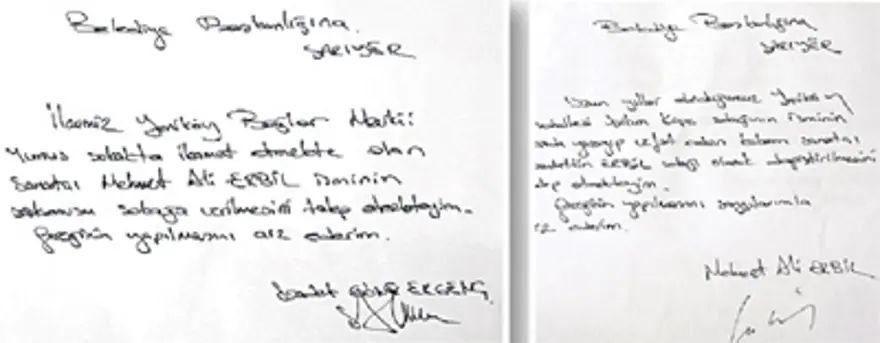 Belediye Başkanlığına
SARIYER
İlçemiz Yeniköy Bağlar Mevkii
Yunus sokakta ikamet etmekte olan
Sanatçı Mehmet Ali ERBİL isminin
sokağa verilmesini talep etmekteyim.
Gereğinin yapılmasını arz ederim.
Belediye Başkanlığına
SARIYER
Uzun yıllar oturduğumuz Yeniköy
mahallesi sokağının isminin
vefat eden babam sanatçı
Sadettin ERBİL sokağı olarak değiştirilmesini
talep etmekteyim.
Gereğinin yapılmasını saygılarımla
arz ederim.
Mehmet Ali ERBİL